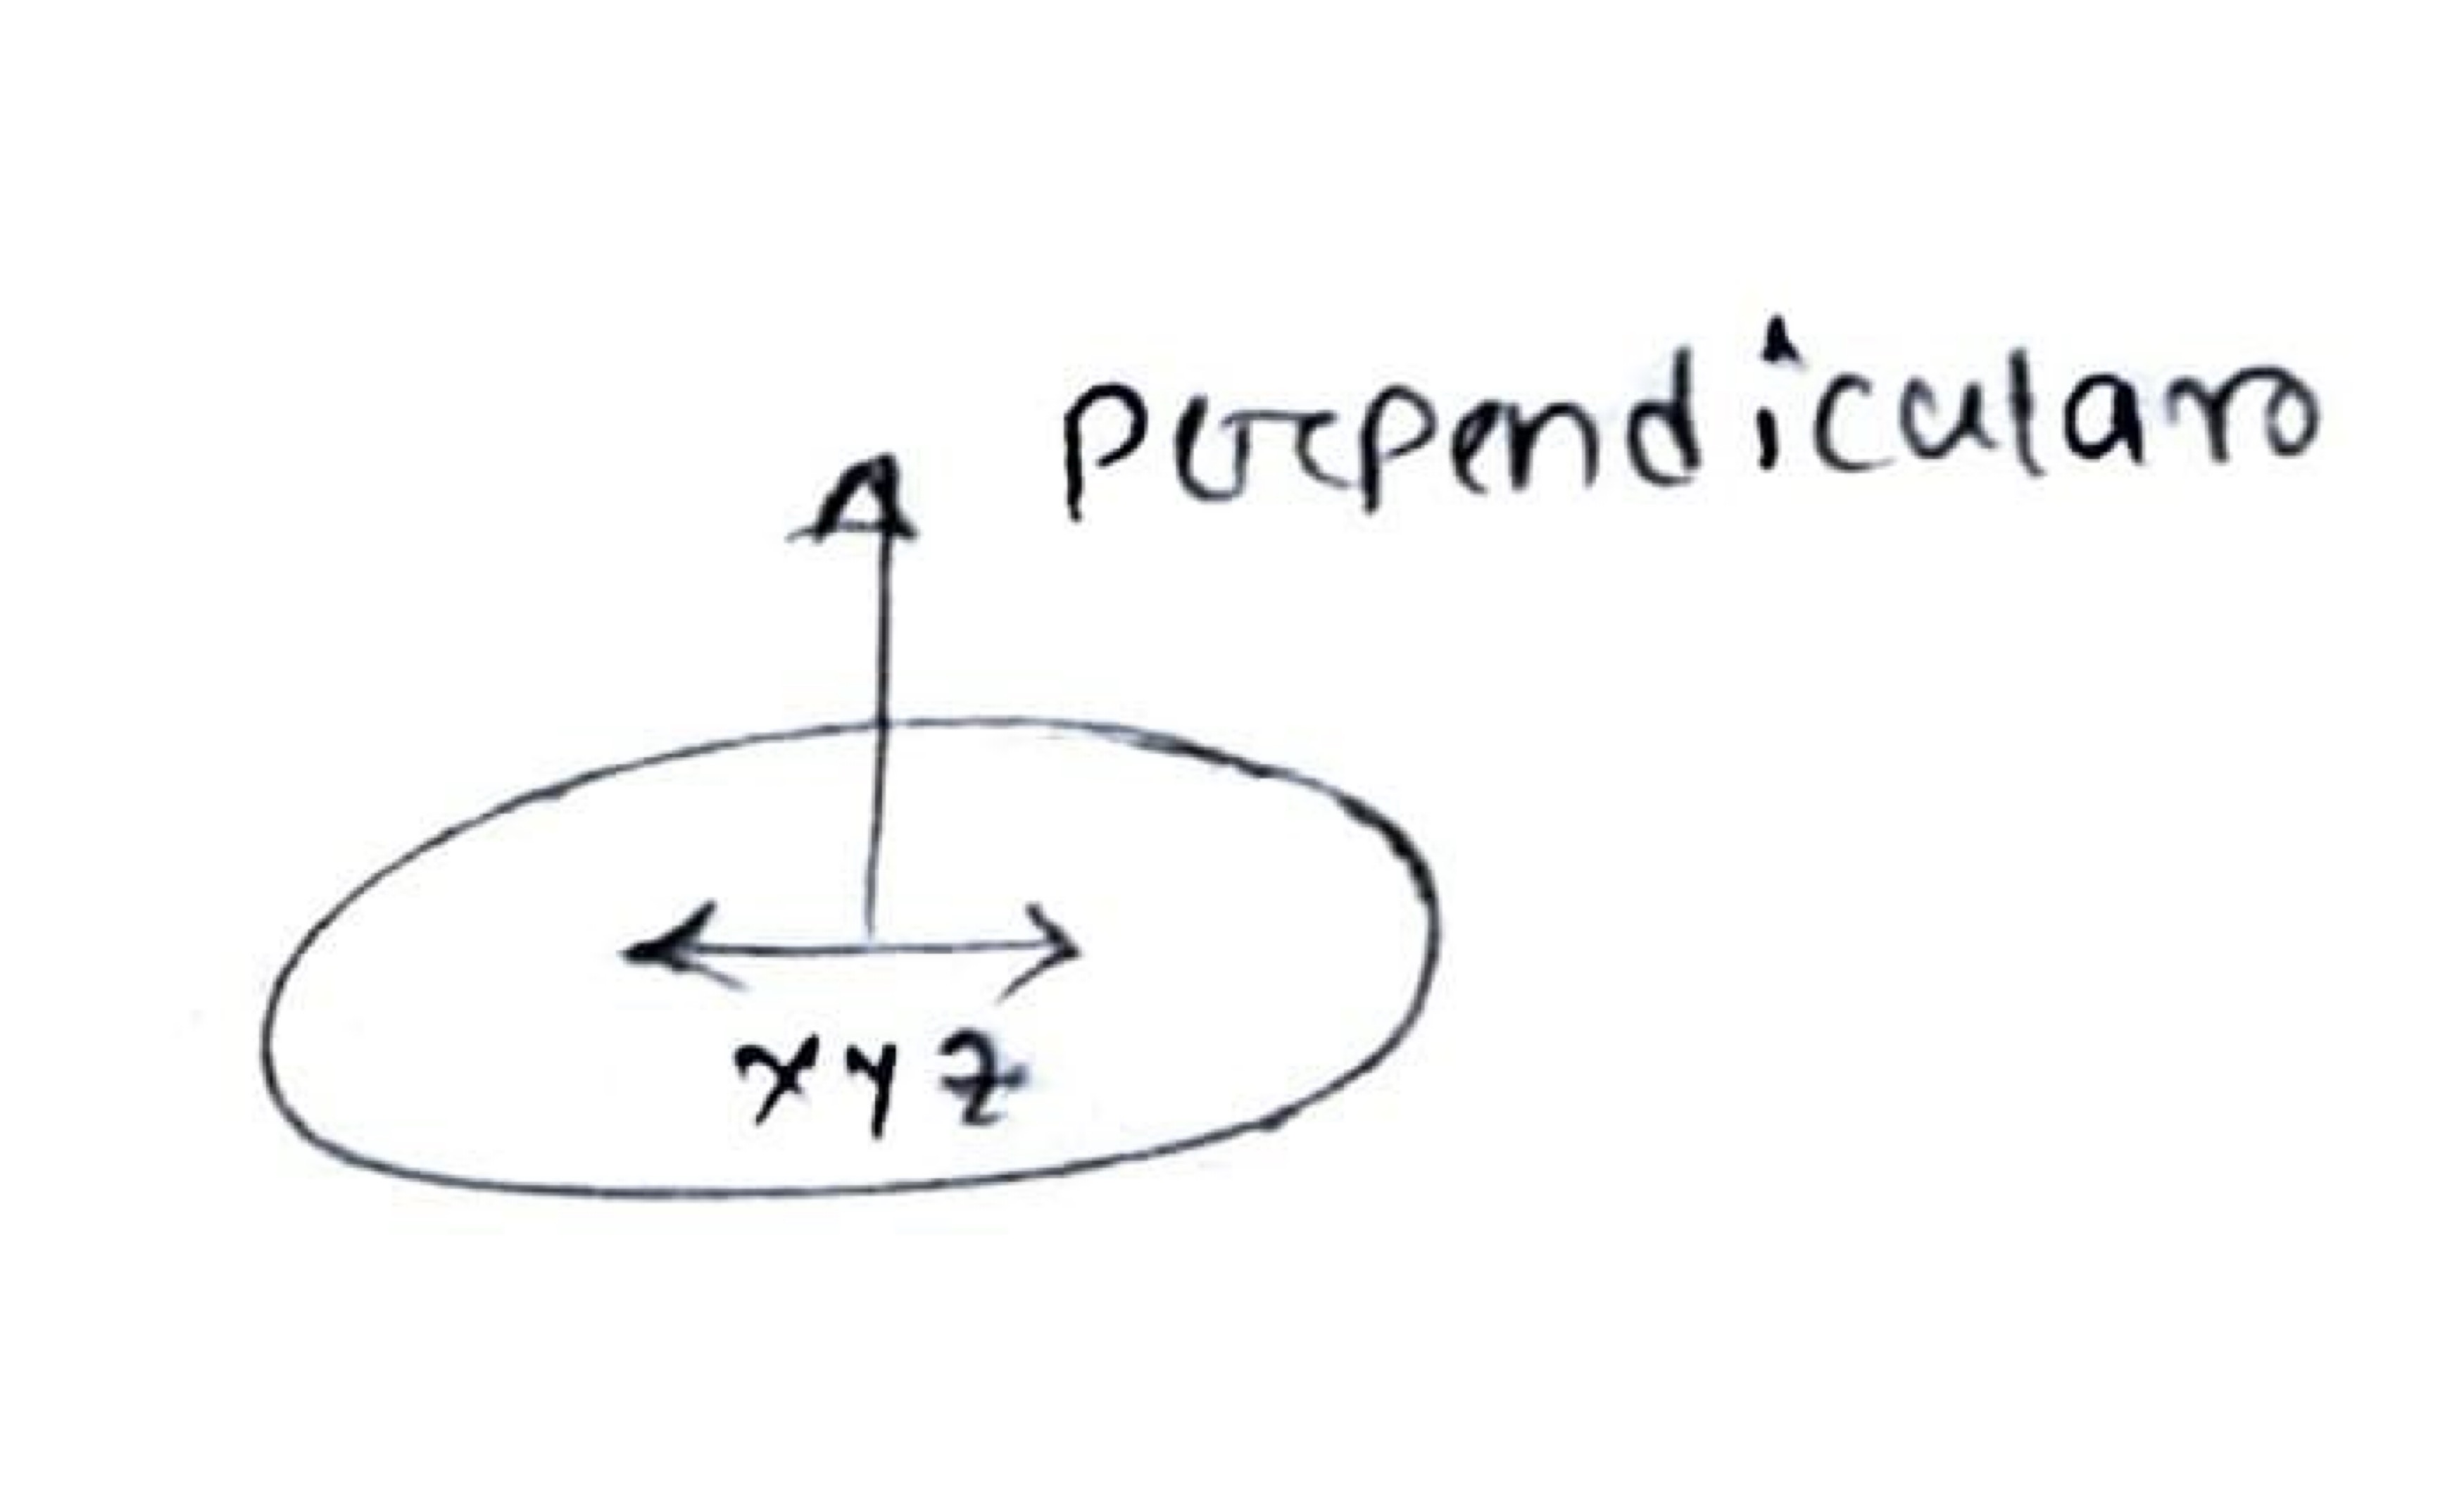 perpendicular
xyz